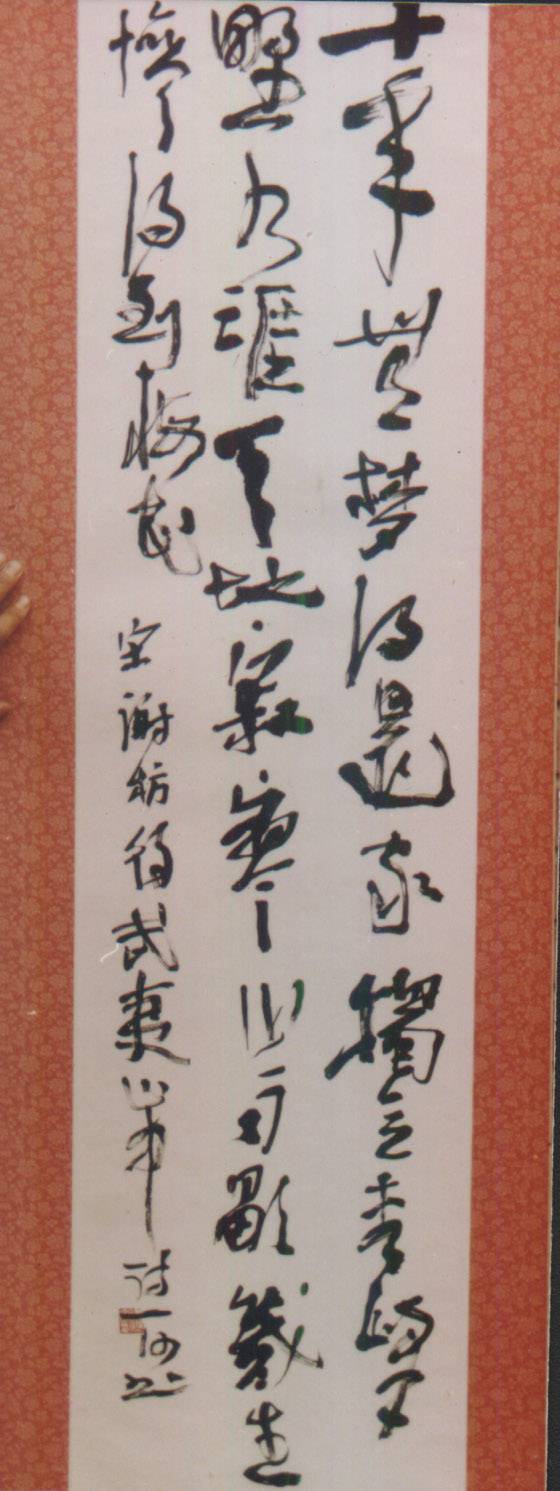 十年無梦得還家獨立青峰
野水涯天地寂寥山雨歇幾生
修得到梅花 宋謝枋得武夷山中 詩